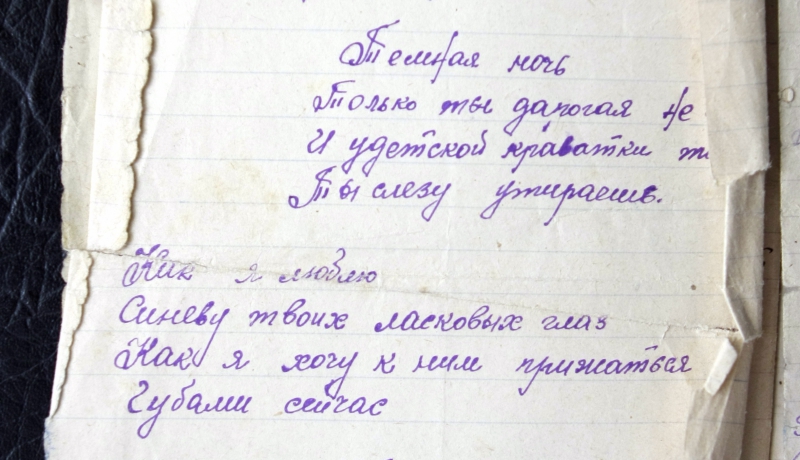 Темная ночь
Только ты дарогая не
И удетской краватки
Ты слезу утираешь.
Как я люблю
Синеву твоих ласковых глаз
Как я хочу к ним прижаться
Губами сейчас